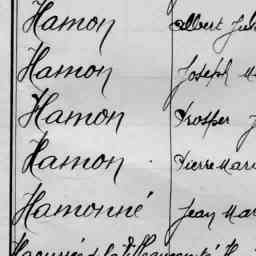 Hamon Albert Jul
Hamon Joseph Ma
Hamon Prosper J
Hamon Pierre Mari
Hamonné Jean Mar